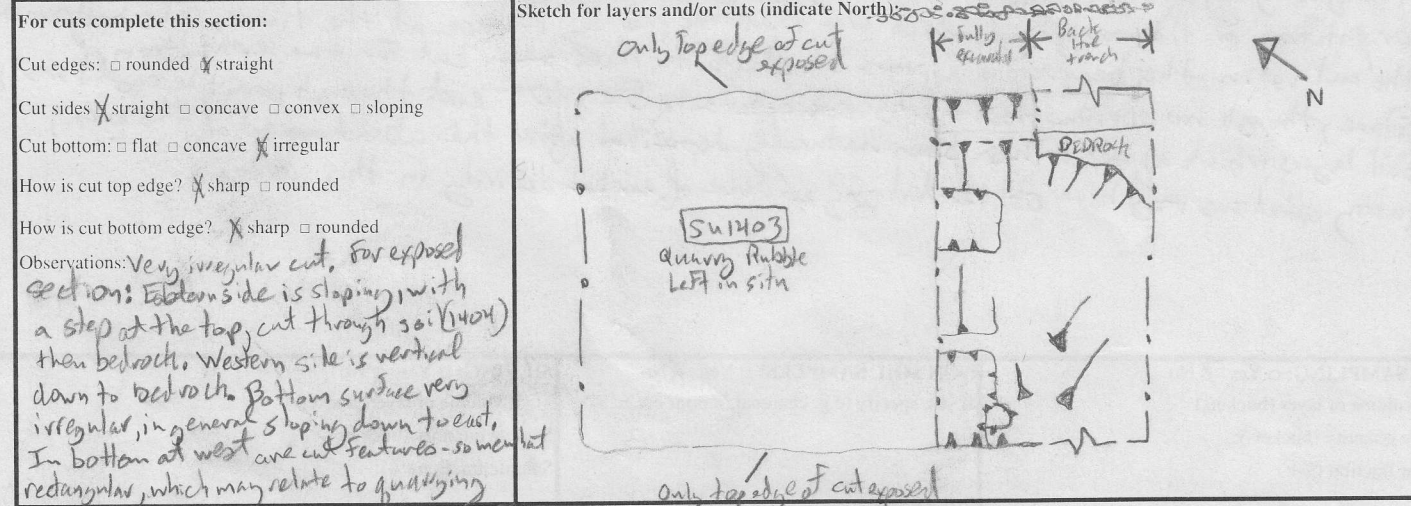 For cuts complete this section:
Cut edges: □ rounded ☒ straight
Cut sides ☒ straight □ concave □ convex □ sloping
Cut bottom: □ flat □ concave ☒ irregular
How is cut top edge? ☒ sharp □ rounded
How is cut bottom edge? ☒ sharp □ rounded
Observations: Very irregular cut. For exposed
section: Eastern side is sloping, with
a step at the top, cut through soil (1404)
then bedrock. Western side is vertical
down to bedrock. Bottom surface very
irregular, in general sloping down to east.
In bottom at west are cut features - somewhat
rectangular, which may relate to quarrying
Sketch for layers and/or cuts (indicate North):
Only Top edge of cut
exposed
fully
excavated
Back
the
trench
N
BEDROCK
SU1403
Quarry Rubble
Left in situ
Only top edge of cut exposed